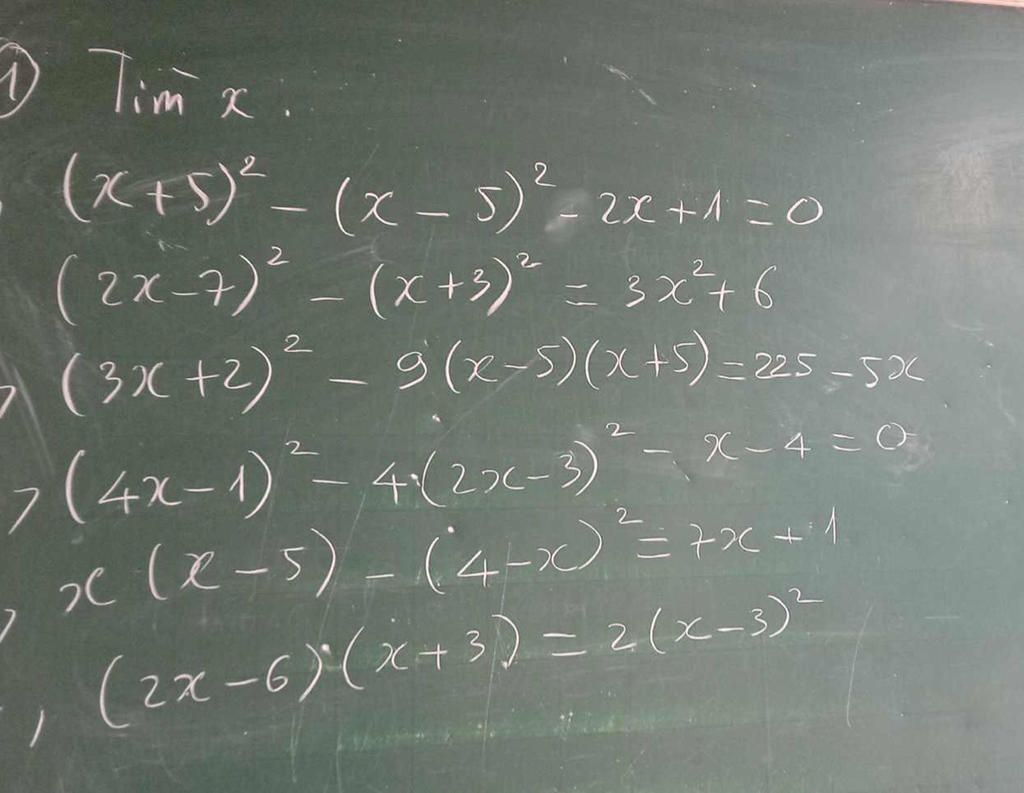 ① Tìm x.
, (x+5)² - (x-5)² - 2x+1=0
(2x-7)² - (x+3)² = 3x²+6
, (3x+2)² - 9(x-5)(x+5)=225-5x
, (4x-1)² - 4.(2x-3)² - x-4=0
, x(x-5) - (4-x)² = 7x+1
, (2x-6).(x+3) = 2(x-3)²